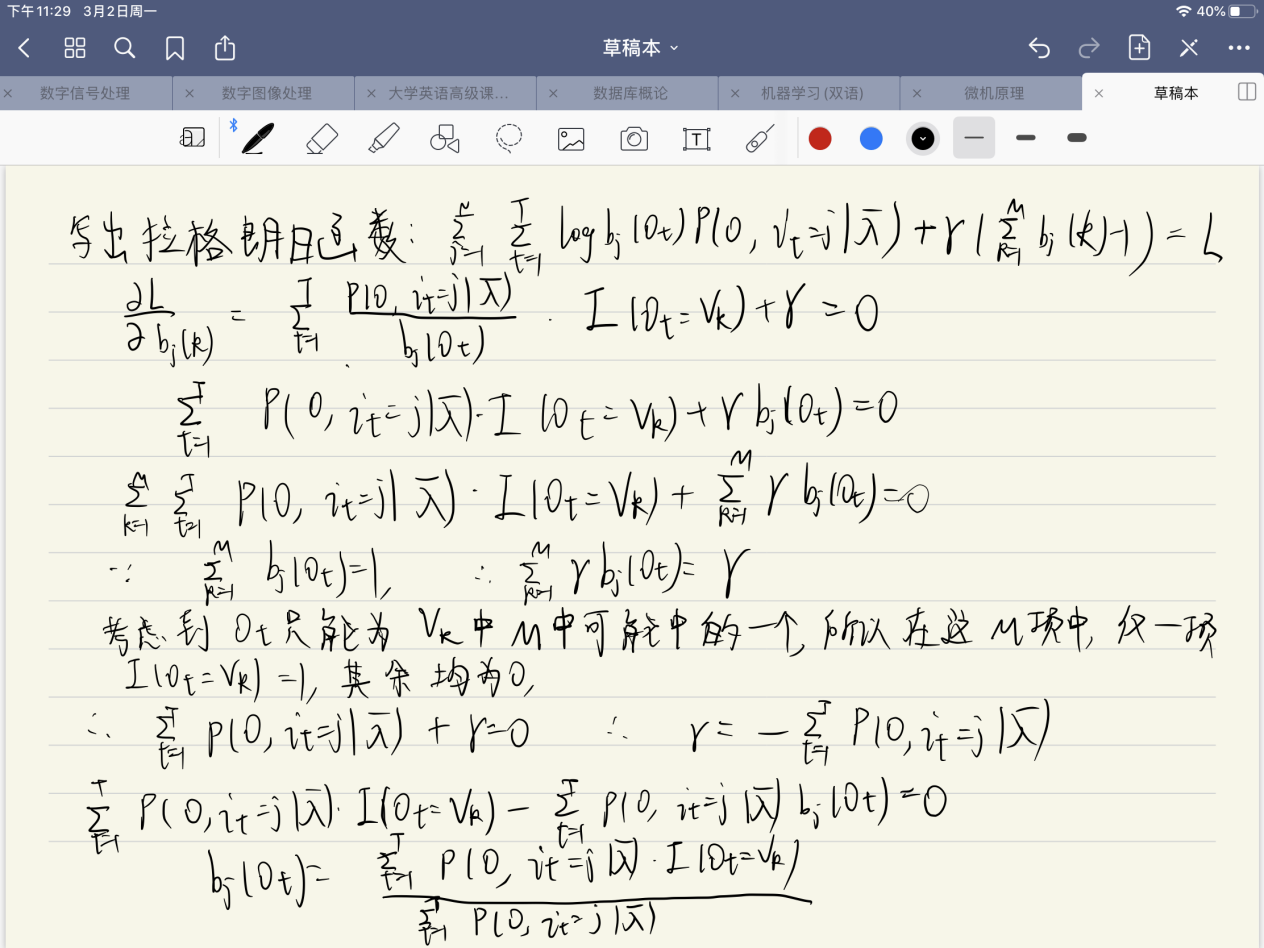 下午11:29 3月2日周一 40%
草稿本
数字信号处理 数字图像处理 大学英语高级课... 数据库概论 机器学习(双语) 微机原理 草稿本
写出拉格朗日函数: ∑_{j=1}^{N} ∑_{t=1}^{T} log b_j(O_t) P(O, i_t=j|λ̄) + γ(∑_{k=1}^{M} b_j(k)-1) = L
∂L/∂b_j(k) = ∑_{t=1}^{T} P(O, i_t=j|λ̄)/b_j(O_t) · I(O_t=V_k) + γ = 0
∑_{t=1}^{T} P(O, i_t=j|λ̄)·I(O_t=V_k) + γ b_j(O_t) = 0
∑_{k=1}^{M} ∑_{t=1}^{T} P(O, i_t=j|λ̄)·I(O_t=V_k) + ∑_{k=1}^{M} γ b_j(O_t) = 0
∵ ∑_{k=1}^{M} b_j(O_t)=1, ∴ ∑_{k=1}^{M} γ b_j(O_t) = γ
考虑到 O_t只能为 V_k中M中可能中的一个,所以在这M项中,仅一项
I(O_t=V_k)=1,其余均为0,
∴ ∑_{t=1}^{T} P(O, i_t=j|λ̄) + γ=0 ∴ γ = -∑_{t=1}^{T} P(O, i_t=j|λ̄)
∑_{t=1}^{T} P(O, i_t=j|λ̄)·I(O_t=V_k) - ∑_{t=1}^{T} P(O, i_t=j|λ̄) b_j(O_t) = 0
b_j(O_t) = ∑_{t=1}^{T} P(O, i_t=j|λ̄)·I(O_t=V_k) / ∑_{t=1}^{T} P(O, i_t=j|λ̄)